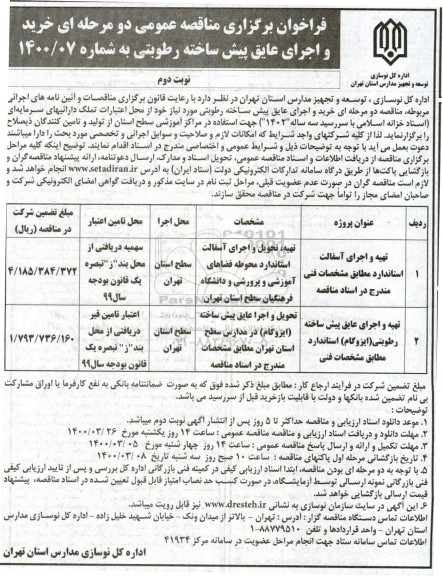 فراخوان برگزاری مناقصه عمومی دو مرحله ای خرید
و اجرای عایق پیش ساخته رطوبتی به شماره ۱۴۰۰/۰۷
اداره کل نوسازی
توسعه و تجهیز مدارس استان تهران
نوبت دوم
اداره کل نوسازی ، توسعه و تجهیز مدارس استان تهران در نظر دارد با رعایت قانون برگزاری مناقصات و آئین نامه های اجرائی
مربوطه، مناقصه دو مرحله ای خرید و اجرای عایق پیش ساخته رطوبتی مورد نیاز خود از محل اعتبارات تملک دارائیهای سرمایه‌ای
(اسناد خزانه اسلامی با سررسید سه ساله "۱۴۰۲") جهت استفاده در مراکز آموزشی سطح استان از تولید و تامین کنندگان ذیصلاح
را برگزار نماید. لذا از کلیه شرکتهای واجد شرایط که امکانات لازم و صلاحیت و سوابق اجرائی و تخصصی مورد بحث را دارا میباشند
دعوت بعمل می آید با توجه به توضیحات ذیل و شرایط عمومی و اختصاصی مندرج در اسناد اقدام نمایند. توضیح اینکه کلیه مراحل
برگزاری مناقصه از دریافت اطلاعات و اسناد مناقصه عمومی، تحویل اسناد و مدارک، ارسال دعوتنامه، ارائه پیشنهاد مناقصه گران و
بازگشایی پاکت‌ها از طریق درگاه سامانه تدارکات الکترونیکی دولت (ستاد ایران) به آدرس www.setadiran.ir انجام خواهد شد و
لازم است مناقصه گران در صورت عدم عضویت قبلی، مراحل ثبت نام در سایت مذکور و دریافت گواهی امضای الکترونیکی شرکت و
صاحبان امضای مجاز را تواماً جهت شرکت در مناقصه محقق سازند.
ردیف عنوان پروژه مشخصات محل اجرا محل تامین اعتبار مبلغ تضمین شرکت در مناقصه (ریال)
۱ تهیه و اجرای آسفالت استاندارد مطابق مشخصات فنی مندرج در اسناد مناقصه
تهیه، تحویل و اجرای آسفالت استاندارد محوطه فضاهای آموزشی و پرورشی و دانشگاه فرهنگیان سطح استان تهران
سطح استان تهران
سهمیه دریافتی از محل بند"ز" تبصره یک قانون بودجه سال ۹۹
۴/۱۸۵/۳۸۴/۳۷۲
۲ تهیه و اجرای عایق پیش ساخته رطوبتی(ایزوگام) استاندارد مطابق مشخصات فنی
تحویل و اجرا عایق پیش ساخته (ایزوگام) در مدارس سطح استان تهران مطابق مشخصات مندرج در اسناد مناقصه
سطح استان تهران
اعتبار تامین قیر دریافتی از محل بند"ز" تبصره یک قانون بودجه سال ۹۹
۱/۷۹۳/۷۳۶/۱۶۰
مبلغ تضمین شرکت در فرآیند ارجاع کار : مطابق مبلغ ذکر شده فوق که به صورت ضمانتنامه بانکی به نفع کارفرما یا اوراق مشارکت
بی نام تضمین شده بانکها و دولت با قابلیت بازخرید قبل از سررسید می باشد.
توضیحات :
۱. موعد دانلود اسناد ارزیابی و مناقصه حداکثر تا ۵ روز پس از انتشار آگهی نوبت دوم میباشد.
۲. مهلت دانلود و دریافت اسناد ارزیابی و مناقصه مناقصه عمومی : ساعت ۱۴ روز یکشنبه مورخ ۱۴۰۰/۰۲/۲۶
۳. مهلت تکمیل و ارائه و ارسال پاسخ مناقصه عمومی : ساعت ۱۴ روز چهار شنبه مورخ ۱۴۰۰/۰۳/۰۵
۴. تاریخ بازگشائی مرحله اول پاکتهای مناقصه : ساعت ۱۰ صبح روز سه شنبه تاریخ ۱۴۰۰/۰۳/۰۸
۵. با توجه به دو مرحله ای بودن مناقصه، ابتدا اسناد ارزیابی کیفی در کمیته فنی بازرگانی اداره کل بررسی و پس از تایید ارزیابی کیفی
فنی بازرگانی نمونه ارسالی توسط آزمایشگاه، در صورت کسب حد نصاب امتیاز قابل قبول تعیین شده در اسناد مناقصه، پیشنهاد
قیمت ارسالی بازگشایی خواهد شد.
۶. این آگهی در سایت سازمان نوسازی به نشانی www.dresteh.ir نیز قابل رویت میباشد.
اطلاعات تماس دستگاه مناقصه گزار : آدرس : تهران - بالاتر از میدان ونک - خیابان شهید خلیل زاده - اداره کل نوسازی مدارس
استان تهران - واحد قراردادها و تلفن ۸۸۷۷۹۵۱۰-۱
اطلاعات تماس سامانه ستاد جهت انجام مراحل عضویت در سامانه مرکز ۴۱۹۳۴
اداره کل نوسازی مدارس استان تهران